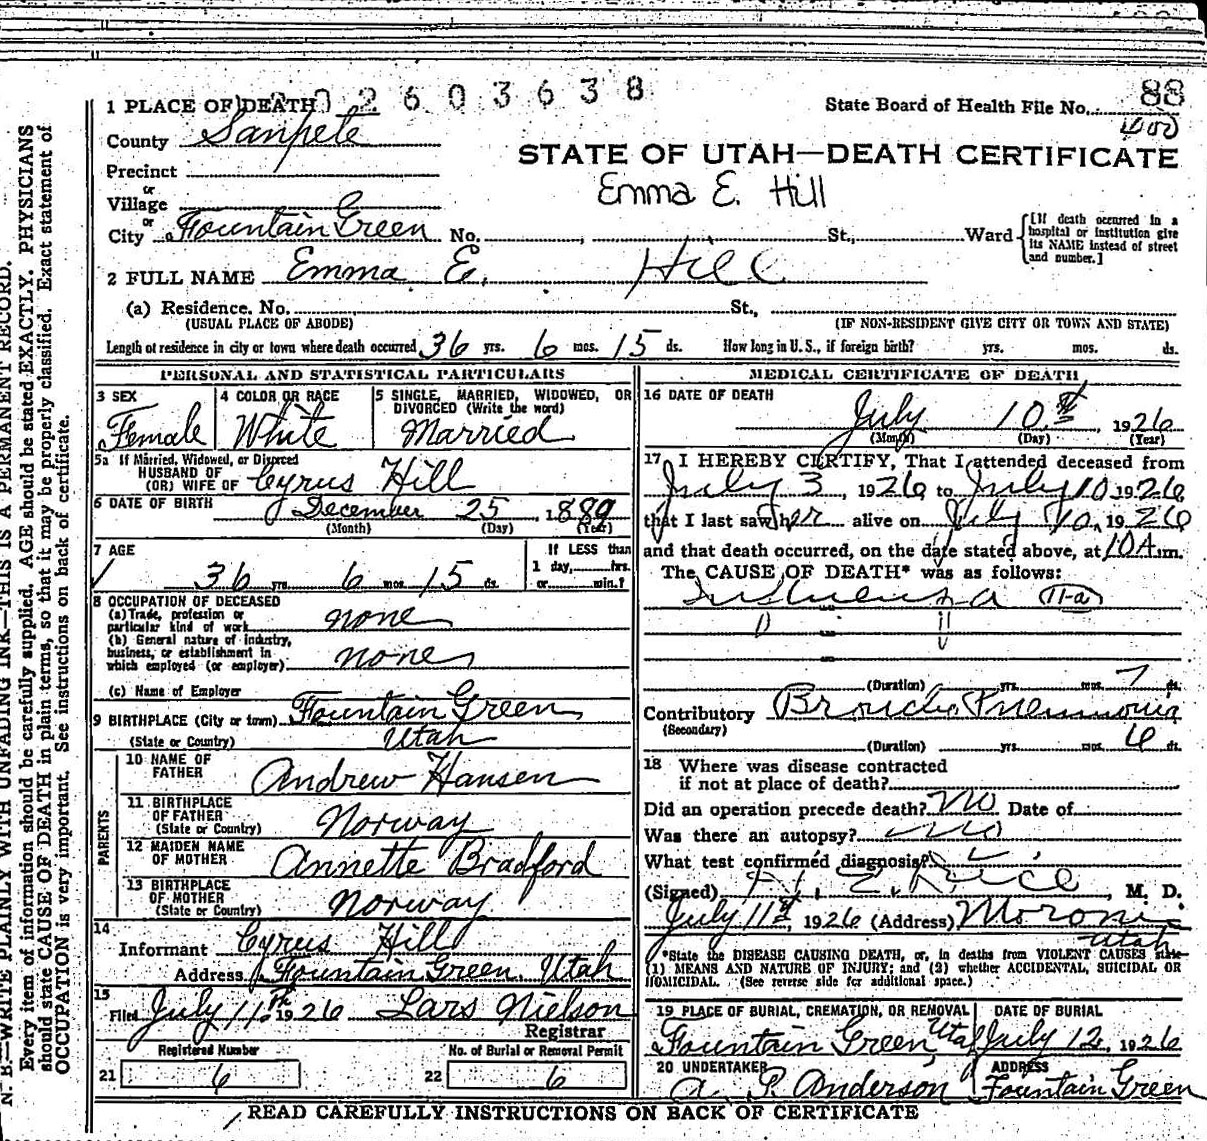 2603638
88
1 PLACE OF DEATH
State Board of Health File No.
400
County Sanpete
STATE OF UTAH—DEATH CERTIFICATE
Precinct
or
Village
Emma E. Hill
or
City Fountain Green No. St., Ward
[If death occurred in a hospital or institution give its NAME instead of street and number.]
2 FULL NAME Emma E. Hill
(a) Residence. No. St.,
(USUAL PLACE OF ABODE) (IF NON-RESIDENT GIVE CITY OR TOWN AND STATE)
Length of residence in city or town where death occurred 36 yrs. 6 mos. 15 ds. How long in U. S., if foreign birth? yrs. mos. ds.
PERSONAL AND STATISTICAL PARTICULARS
3 SEX
Female
4 COLOR OR RACE
White
5 SINGLE, MARRIED, WIDOWED, OR
DIVORCED (Write the word)
Married
5a If Married, Widowed, or Divorced
HUSBAND OF
(OR) WIFE OF Cyrus Hill
6 DATE OF BIRTH December 25, 1889
(Month) (Day) (Year)
7 AGE
36 yrs. 6 mos. 15 ds.
If LESS than
1 day, hrs.
or min.?
8 OCCUPATION OF DECEASED
(a) Trade, profession or
particular kind of work none
(b) General nature of industry,
business, or establishment in
which employed (or employer) none
(c) Name of Employer
9 BIRTHPLACE (City or town) Fountain Green,
(State or Country) Utah
PARENTS
10 NAME OF
FATHER Andrew Hansen
11 BIRTHPLACE
OF FATHER
(State or Country) Norway
12 MAIDEN NAME
OF MOTHER Annette Bradford
13 BIRTHPLACE
OF MOTHER
(State or Country) Norway
14
Informant Cyrus Hill
Address Fountain Green, Utah
15
Filed July 11th 1926 Lars Nielson
Registrar
Registered Number No. of Burial or Removal Permit
21 6 22 6
MEDICAL CERTIFICATE OF DEATH
16 DATE OF DEATH
July 10th 1926
(Month) (Day) (Year)
17 I HEREBY CERTIFY, That I attended deceased from
July 3, 1926 to July 10 1926
that I last saw her alive on July 10, 1926
and that death occurred, on the date stated above, at 10 A.m.
The CAUSE OF DEATH* was as follows:
Influenza 11-a
(Duration) yrs. mos. 7 ds.
Contributory Broncho Pneumonia
(Secondary)
(Duration) yrs. mos. 6 ds.
18 Where was disease contracted
if not at place of death?
Did an operation precede death? no Date of
Was there an autopsy? no
What test confirmed diagnosis?
(Signed) M. D.
July 11th, 1926 (Address) Moroni
Utah
*State the DISEASE CAUSING DEATH, or, in deaths from VIOLENT CAUSES state
(1) MEANS AND NATURE OF INJURY; and (2) whether ACCIDENTAL, SUICIDAL OR
HOMICIDAL. (See reverse side for additional space.)
19 PLACE OF BURIAL, CREMATION, OR REMOVAL
Fountain Green, Utah
DATE OF BURIAL
July 12, 1926
20 UNDERTAKER
A. P. Anderson
ADDRESS
Fountain Green
READ CAREFULLY INSTRUCTIONS ON BACK OF CERTIFICATE
N. B.—WRITE PLAINLY WITH UNFADING INK—THIS IS A PERMANENT RECORD.
Every item of information should be carefully supplied. AGE should be stated EXACTLY. PHYSICIANS
should state CAUSE OF DEATH in plain terms, so that it may be properly classified. Exact statement of
OCCUPATION is very important. See instructions on back of certificate.